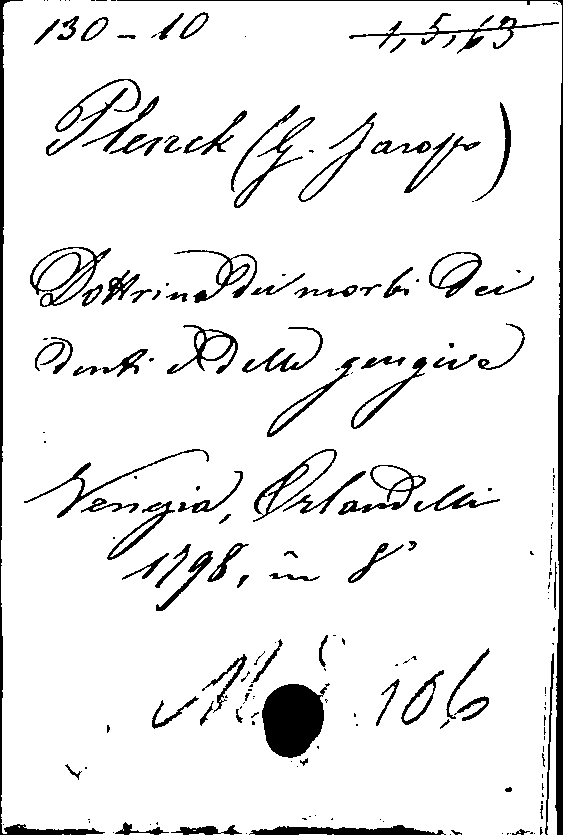 130-10 1,5,63
Plenck (G. Jacopo)
Dottrina dei morbi dei
denti e delle gengive
Venezia, Orlandelli
1798, in 8°
M 106